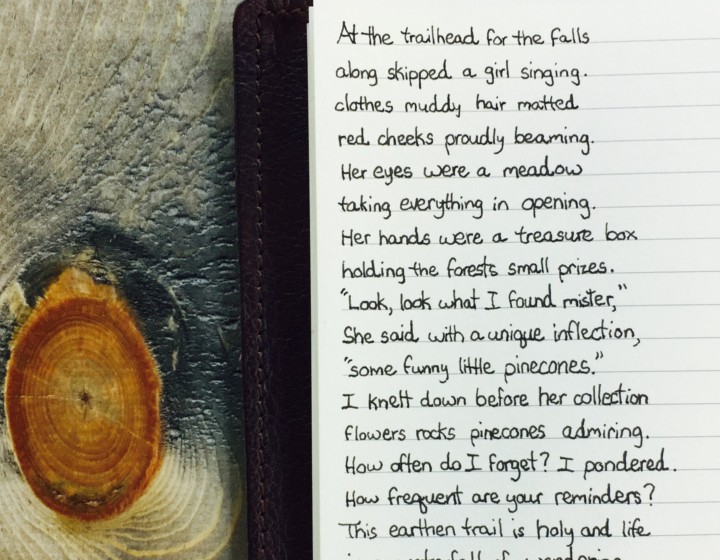 At the trailhead for the falls
along skipped a girl singing.
clothes muddy hair matted
red cheeks proudly beaming.
Her eyes were a meadow
taking everything in opening.
Her hands were a treasure box
holding the forests small prizes.
"Look, look what I found mister,"
She said with a unique inflection,
"some funny little pinecones."
I knelt down before her collection
flowers rocks pinecones admiring.
How often do I forget? I pondered.
How frequent are your reminders?
This earthen trail is holy and life
full of